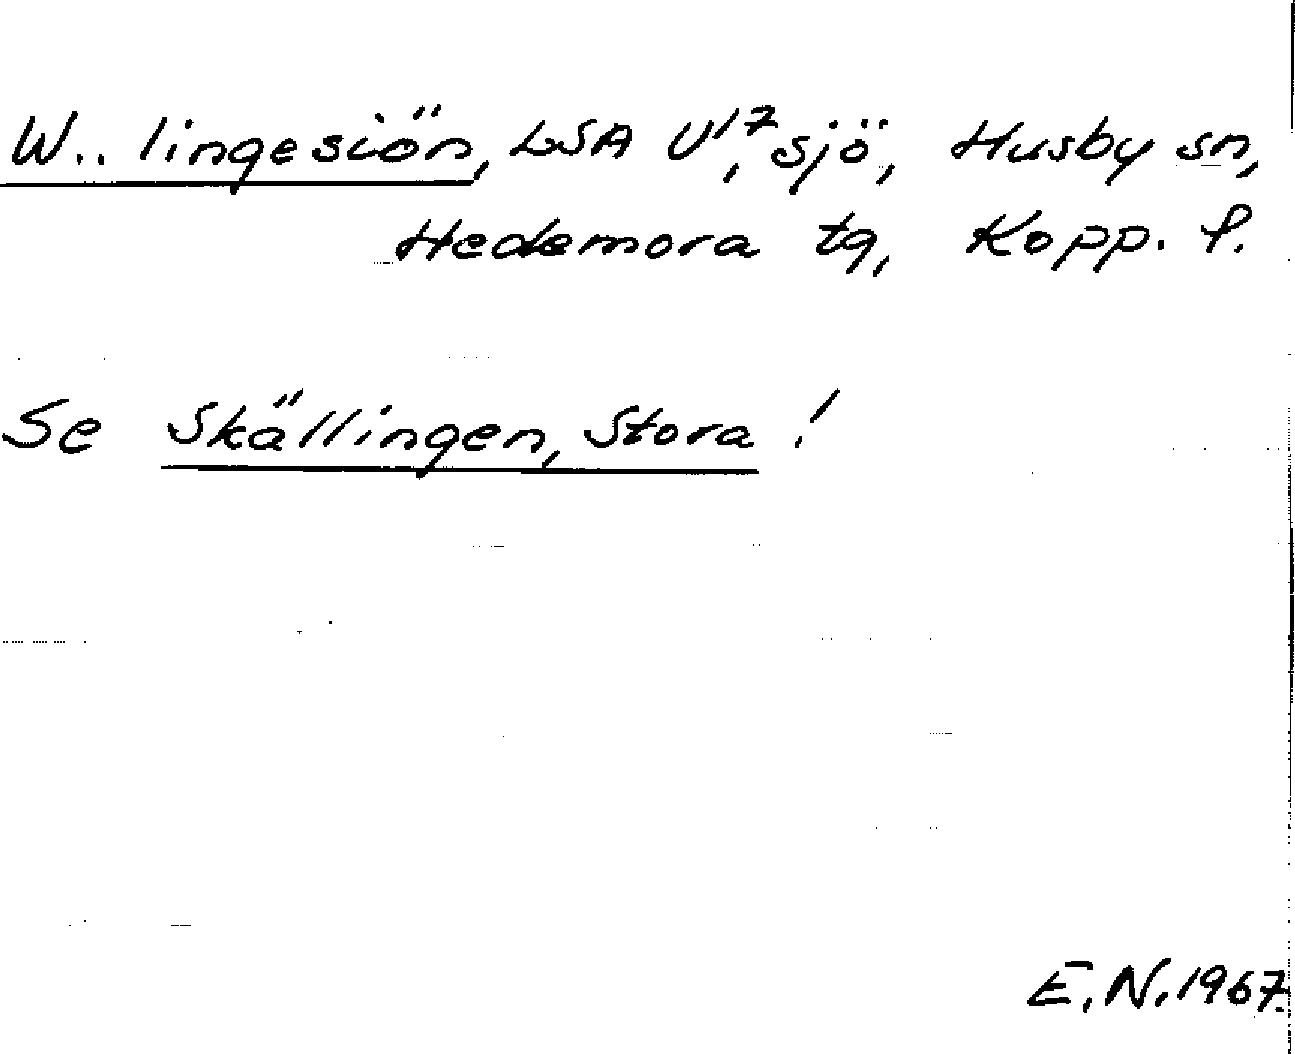 W.. lingesiön, LSA U¹⁷, sjö, Husby sn,
Hedemora tg, Kopp. l.
Se Skällingen, Stora !
E.N. 1967.